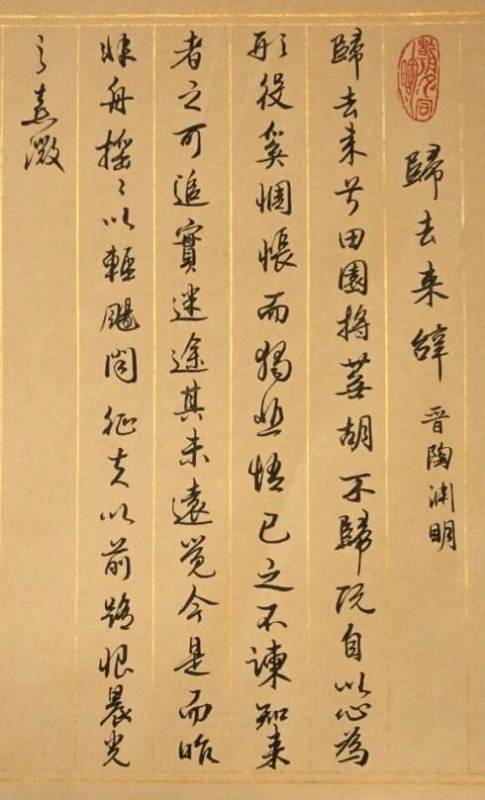 歸去来辞 晋陶渊明
歸去来兮田園将蕪胡不歸既自以心為
形役奚惆悵而獨悲悟已之不諫知来
者之可追實迷途其未遠覚今是而昨
非舟搖〻以輕颺問征夫以前路恨晨光
之熹微